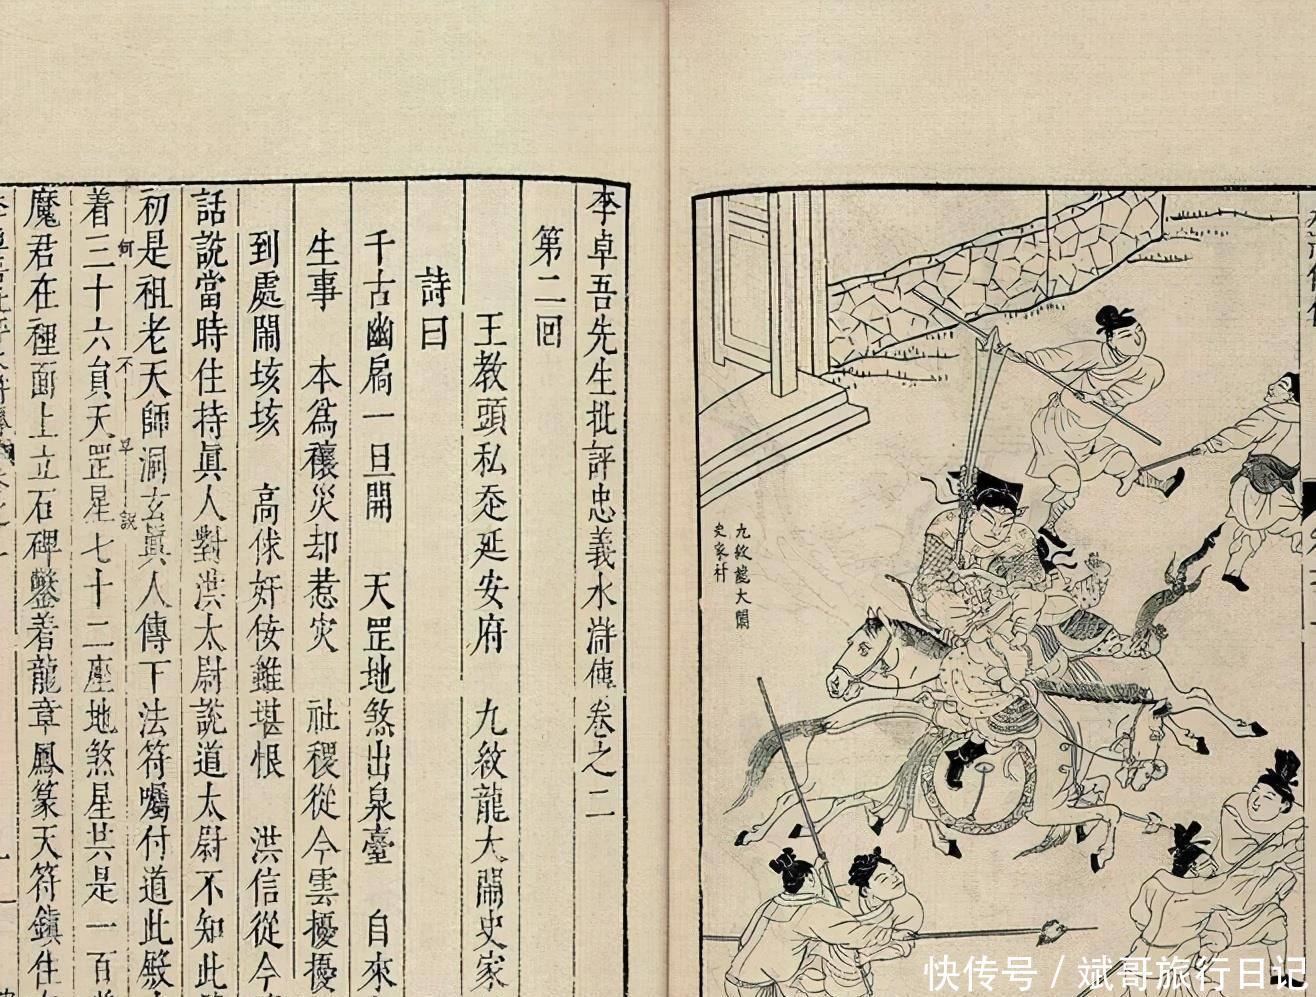 李卓吾先生批評忠義水滸傳卷之二
第二回
王教頭私走延安府 九紋龍大鬧史家
詩曰
千古幽扃一旦開 天罡地煞出泉臺 自來
生事 本為禳災却惹灾 社稷從今雲擾擾
到處鬧垓垓 高俅奸佞雖堪恨 洪信從今
話說當時住持眞人對洪太尉說道太尉不知此
初是祖老天師洞玄眞人傳下法符囑付道此殿
何不早說
着三十六員天罡星七十二座地煞星共是一百
魔君在裡面上立石碑鑿着龍章鳳篆天符鎮住
九紋龍大鬧
史家村
快传号 / 斌哥旅行日记